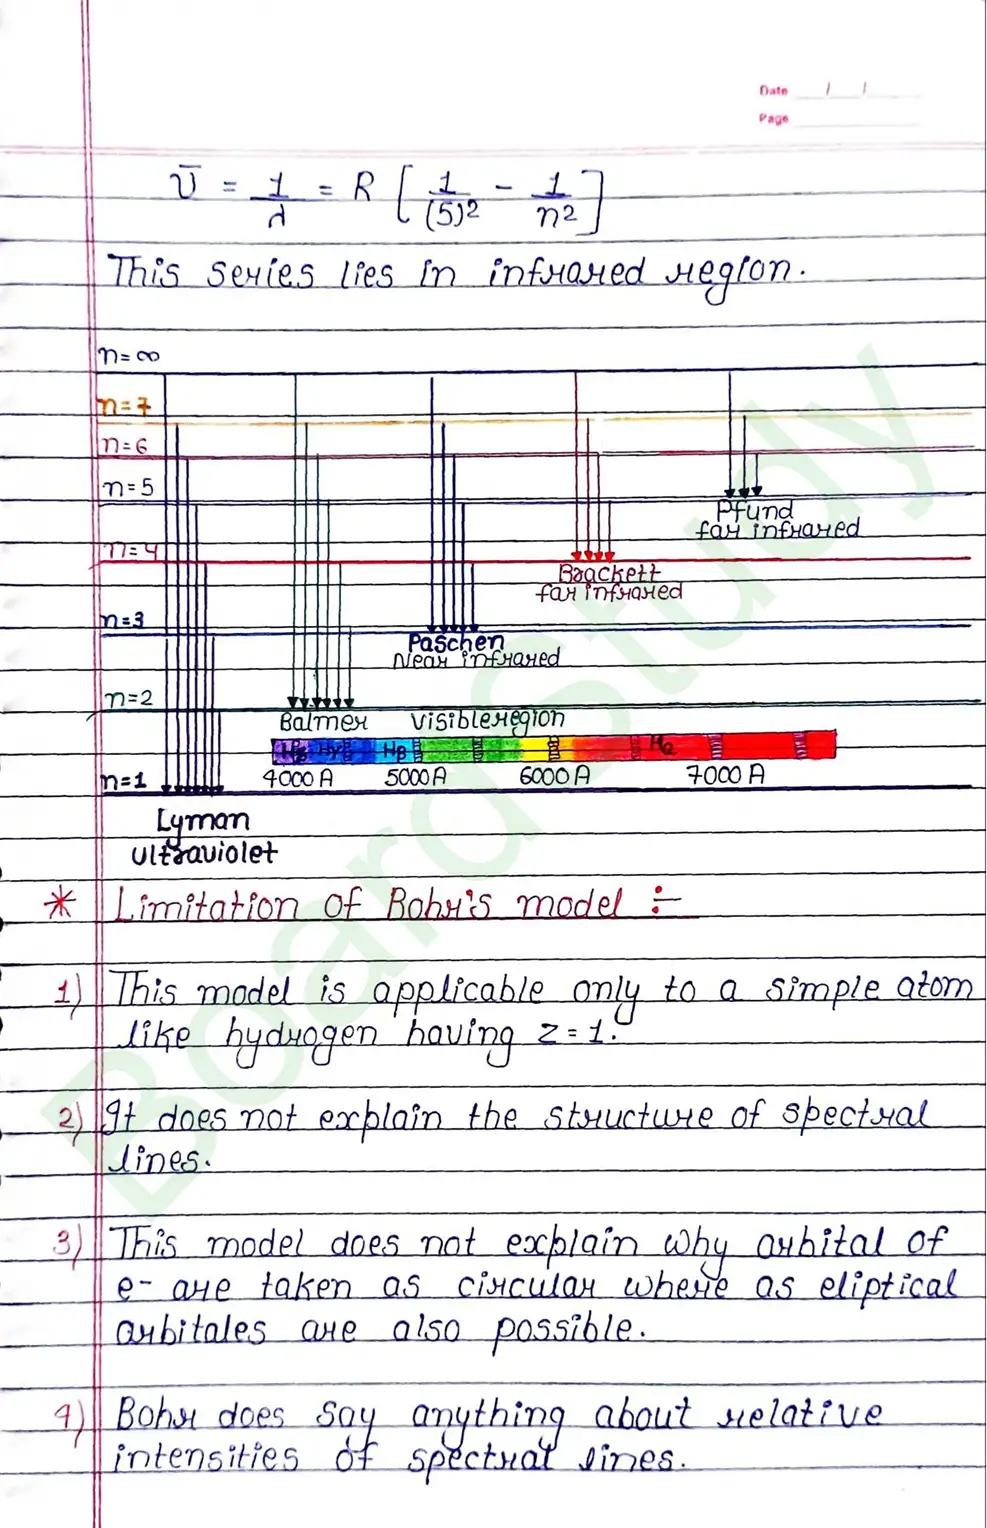 Date / /
Page
ῡ = 1/λ = R [1/(5)² - 1/n²]
This series lies in infrared region.
n=∞
n=7
n=6
n=5
Pfund
far infrared
n=4
Brackett
far infrared
n=3
Paschen
Near infrared
n=2
Balmer visible region
Hδ Hγ Hβ Hα
4000 A 5000 A 6000 A 7000 A
n=1
Lyman
ultraviolet
* Limitation of Bohr's model :-
1) This model is applicable only to a simple atom
like hydrogen having z=1.
2) It does not explain the structure of spectral
lines.
3) This model does not explain why orbital of
e- are taken as circular where as eliptical
orbitales are also possible.
4) Bohr does say anything about relative
intensities of spectral lines.
BoardStudy